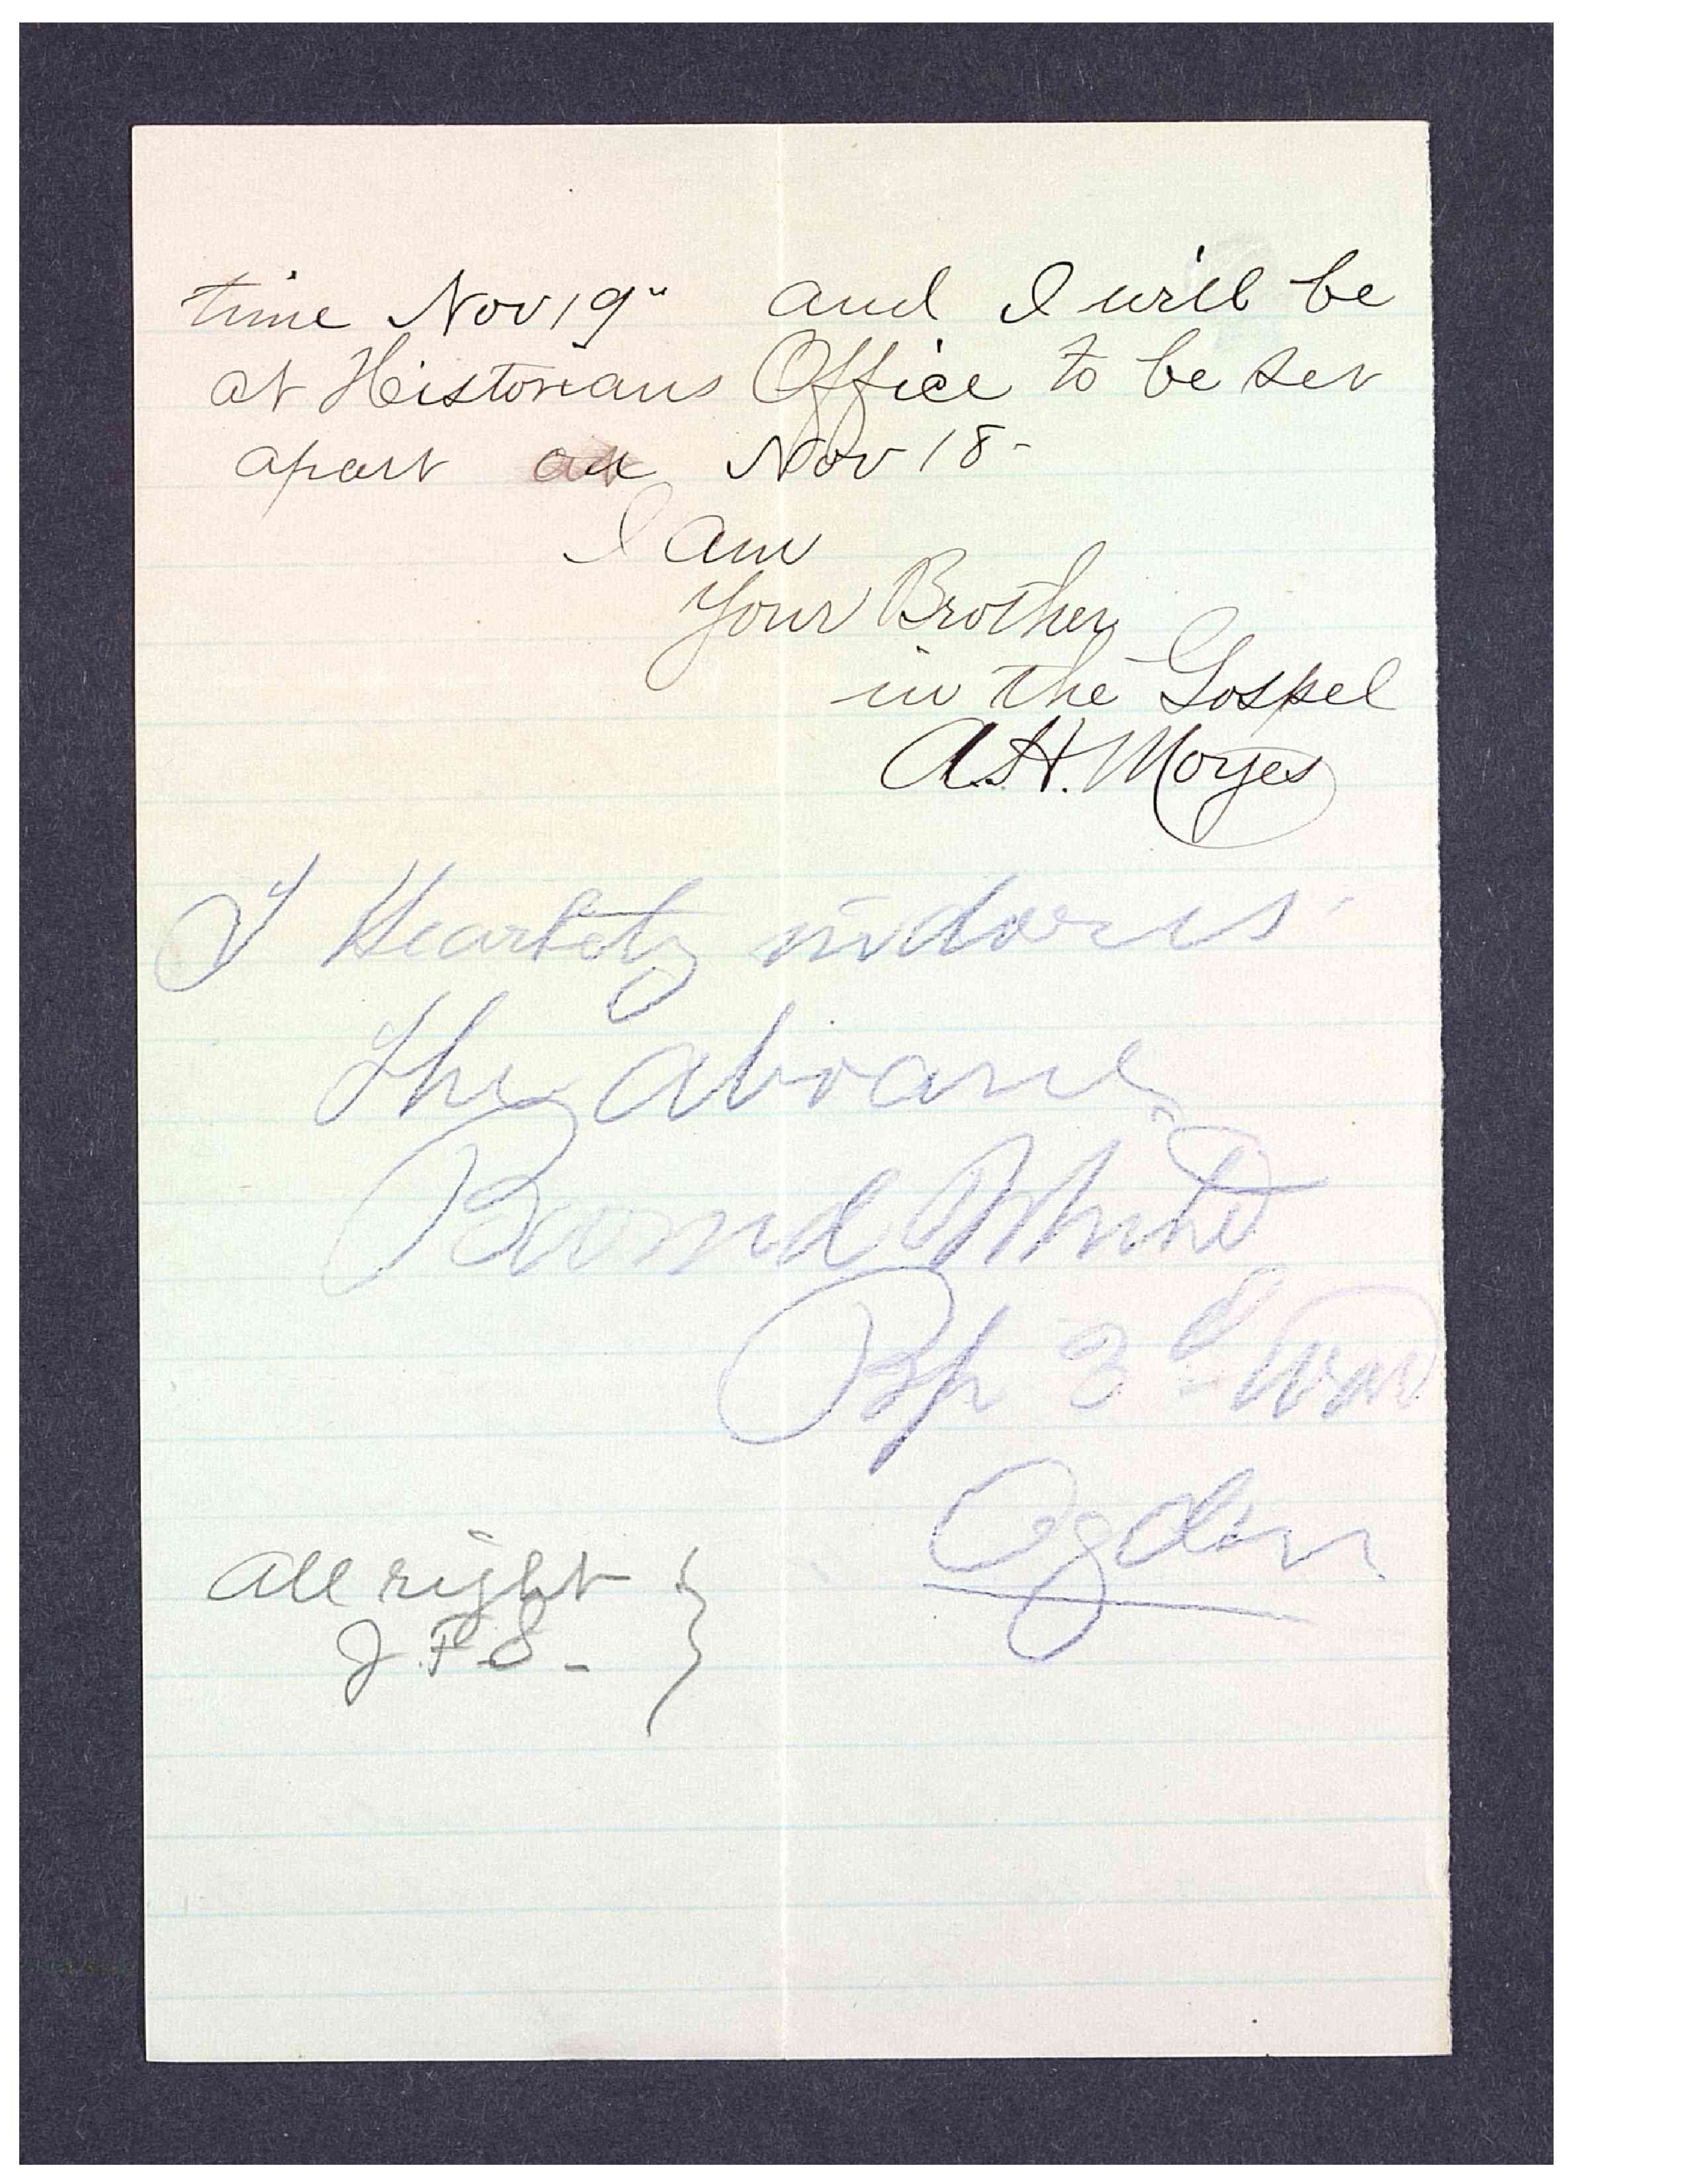 time Nov 19" and I will be
at Historians Office to be set
apart on Nov 18-
I am
Your Brother
in the Gospel
A.H. Moyes
I Heartely indorss
the above
Barnard White
Bp 3d War
Ogden
All right
J.F.S.-